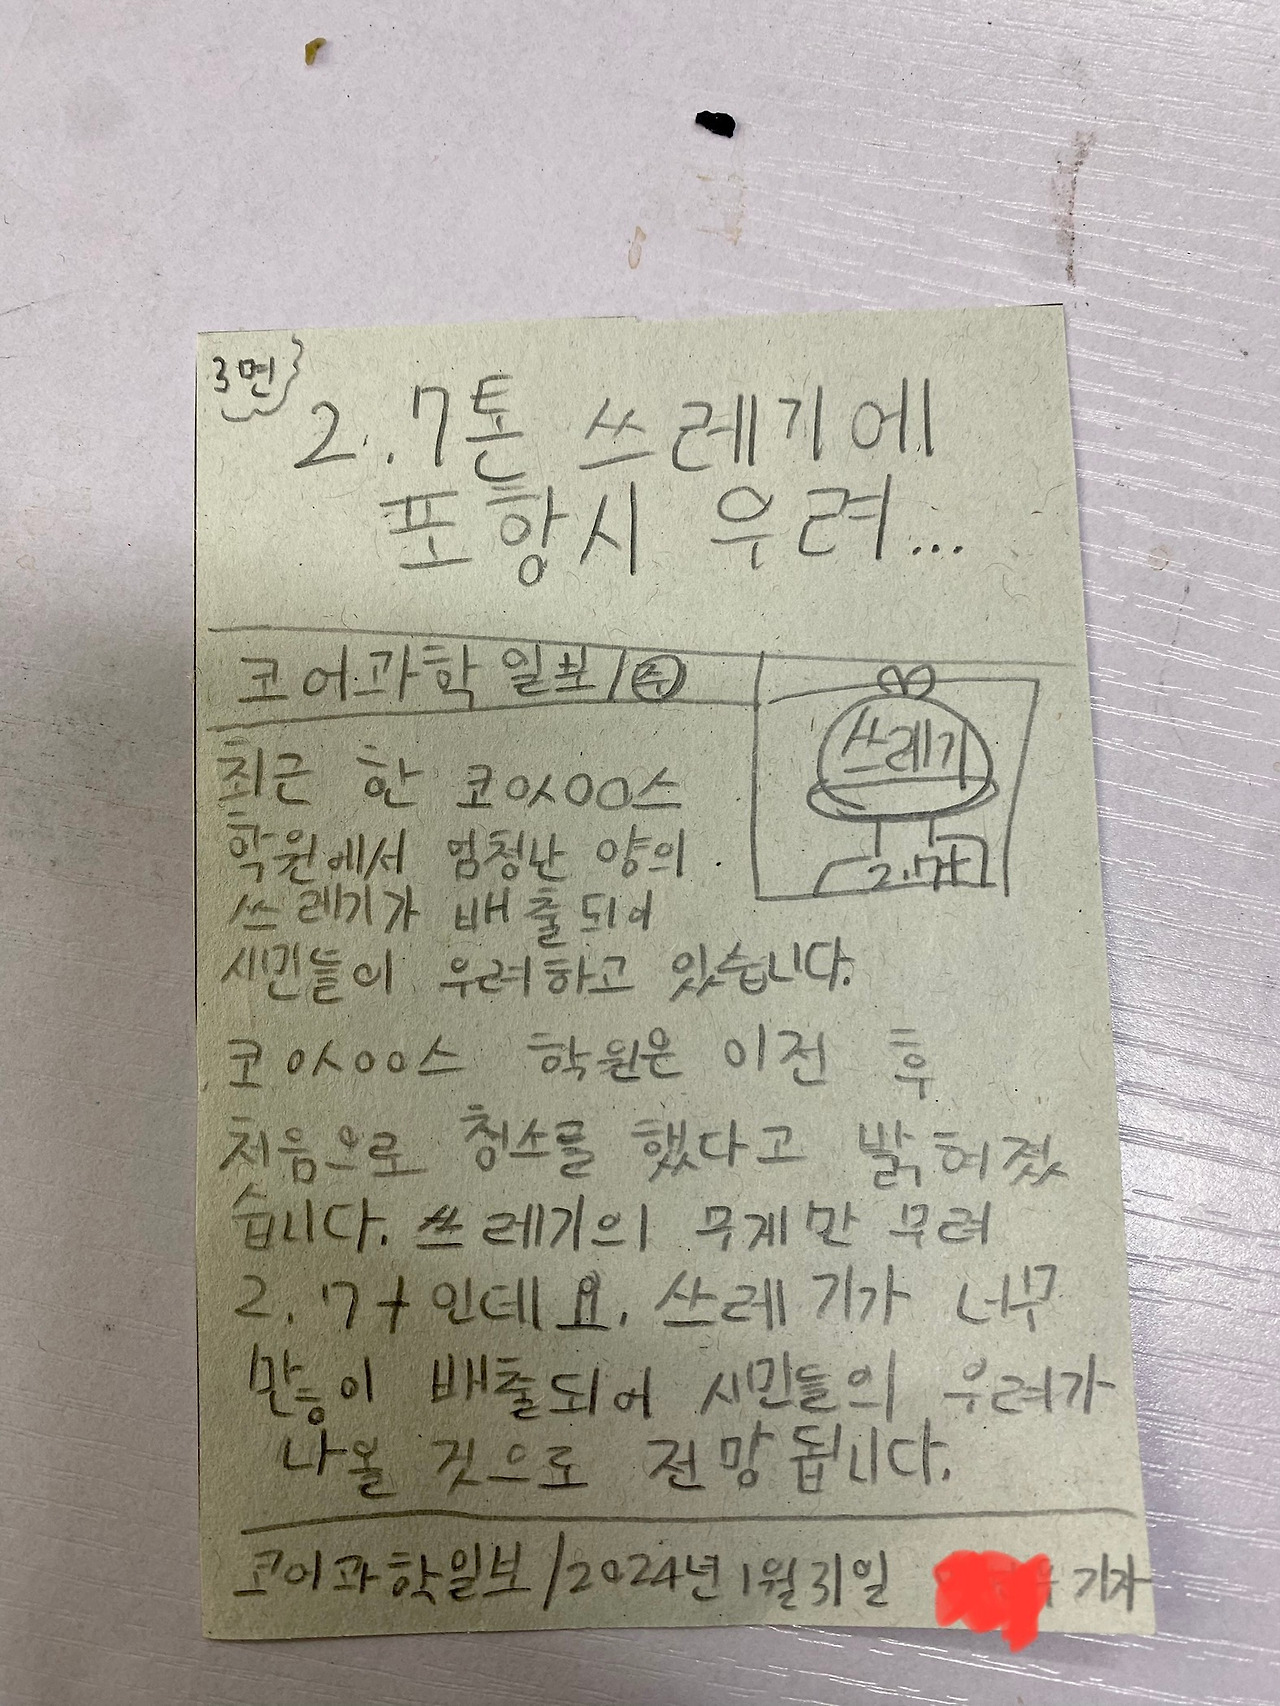 3면
2.7톤 쓰레기에
포항시 우려...
코어과학일보/㈜
쓰레기
2.7t
최근 한 코어사이언스
학원에서 엄청난 양의
쓰레기가 배출되어
시민들이 우려하고 있습니다.
학원은 이전 후
처음으로 청소를 했다고 밝혀졌
습니다. 쓰레기의 무게만 무려
2.7t인데요. 쓰레기가 너무
많이 배출되어 시민들의 우려가
나올 것으로 전망됩니다.
코어과학일보/2024년1월31일 기자